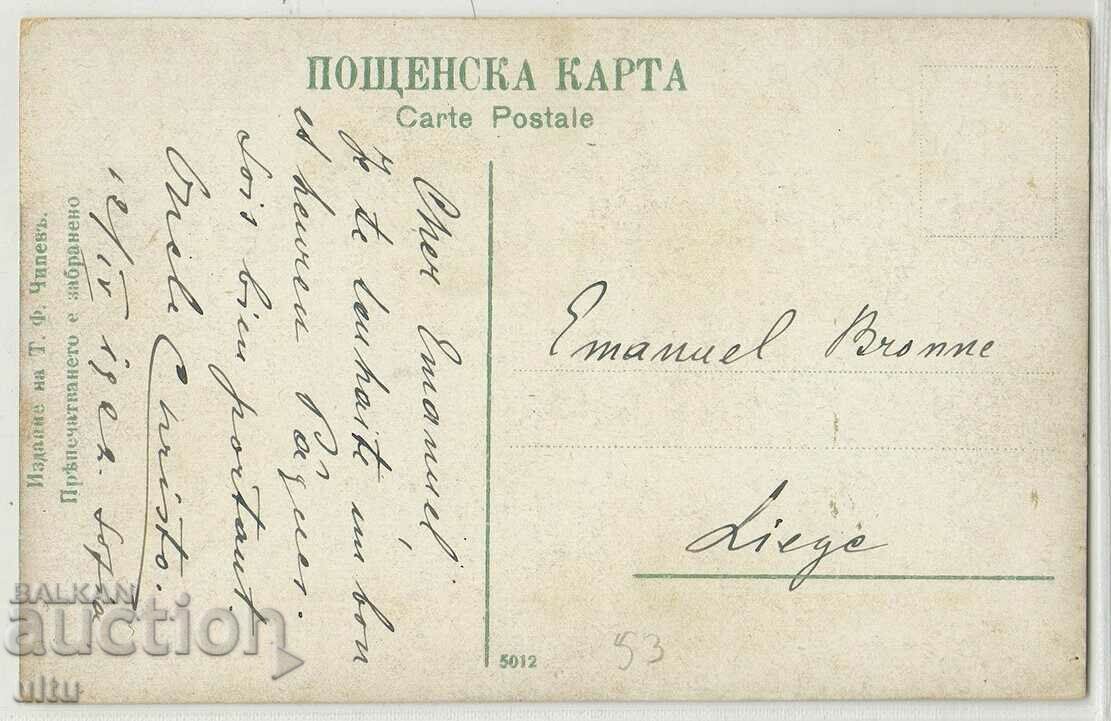 ПОЩЕНСКА КАРТА
Carte Postale
Cher Emanuel,
Je te souhaite un bon
et heureu Pâques.
Sois bien portant.
Oncle Christo.
12/IV 192. Sofia
Издание на Т. Ф. Чипевъ.
Прѣпечатването е забранено
Emanuel Bronne
Liege
5012
53
BALKAN
auction
ultu